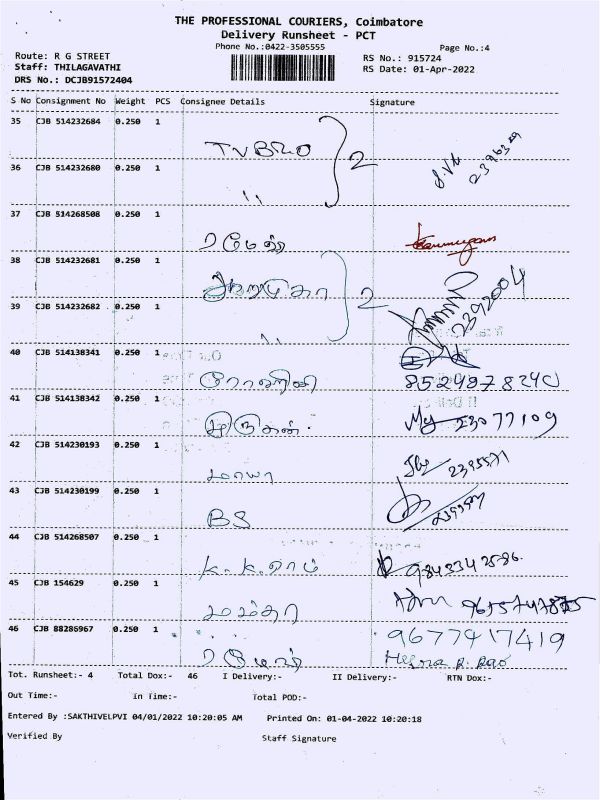 THE PROFESSIONAL COURIERS, Coimbatore
Delivery Runsheet - PCT
Phone No.:0422-3505555
Page No.:4
Route: R G STREET
RS No.: 915724
Staff: THILAGAVATHI
RS Date: 01-Apr-2022
DRS No.: DCJB91572404
S No Consignment No Weight PCS Consignee Details Signature
35 CJB 514232684 0.250 1
TVBRO 2
36 CJB 514232680 0.250 1
"
37 CJB 514268508 0.250 1
ரமேஷ்
38 CJB 514232681 0.250 1
2 2392004
39 CJB 514232682 0.250 1
"
40 CJB 514138341 0.250 1
41 CJB 514138342 0.250 1
முருகன். 23077109
42 CJB 514230193 0.250 1
மாயா 2395571
43 CJB 514230199 0.250 1
BS
44 CJB 514268507 0.250 1
K. K. ராம்
45 CJB 154629 0.250 1
46 CJB 88286967 0.250 1
9677417419
Tot. Runsheet:- 4 Total Dox:- 46 I Delivery:- II Delivery:- RTN Dox:-
Out Time:- In Time:- Total POD:-
Entered By :SAKTHIVELPVI 04/01/2022 10:20:05 AM Printed On: 01-04-2022 10:20:18
Verified By Staff Signature